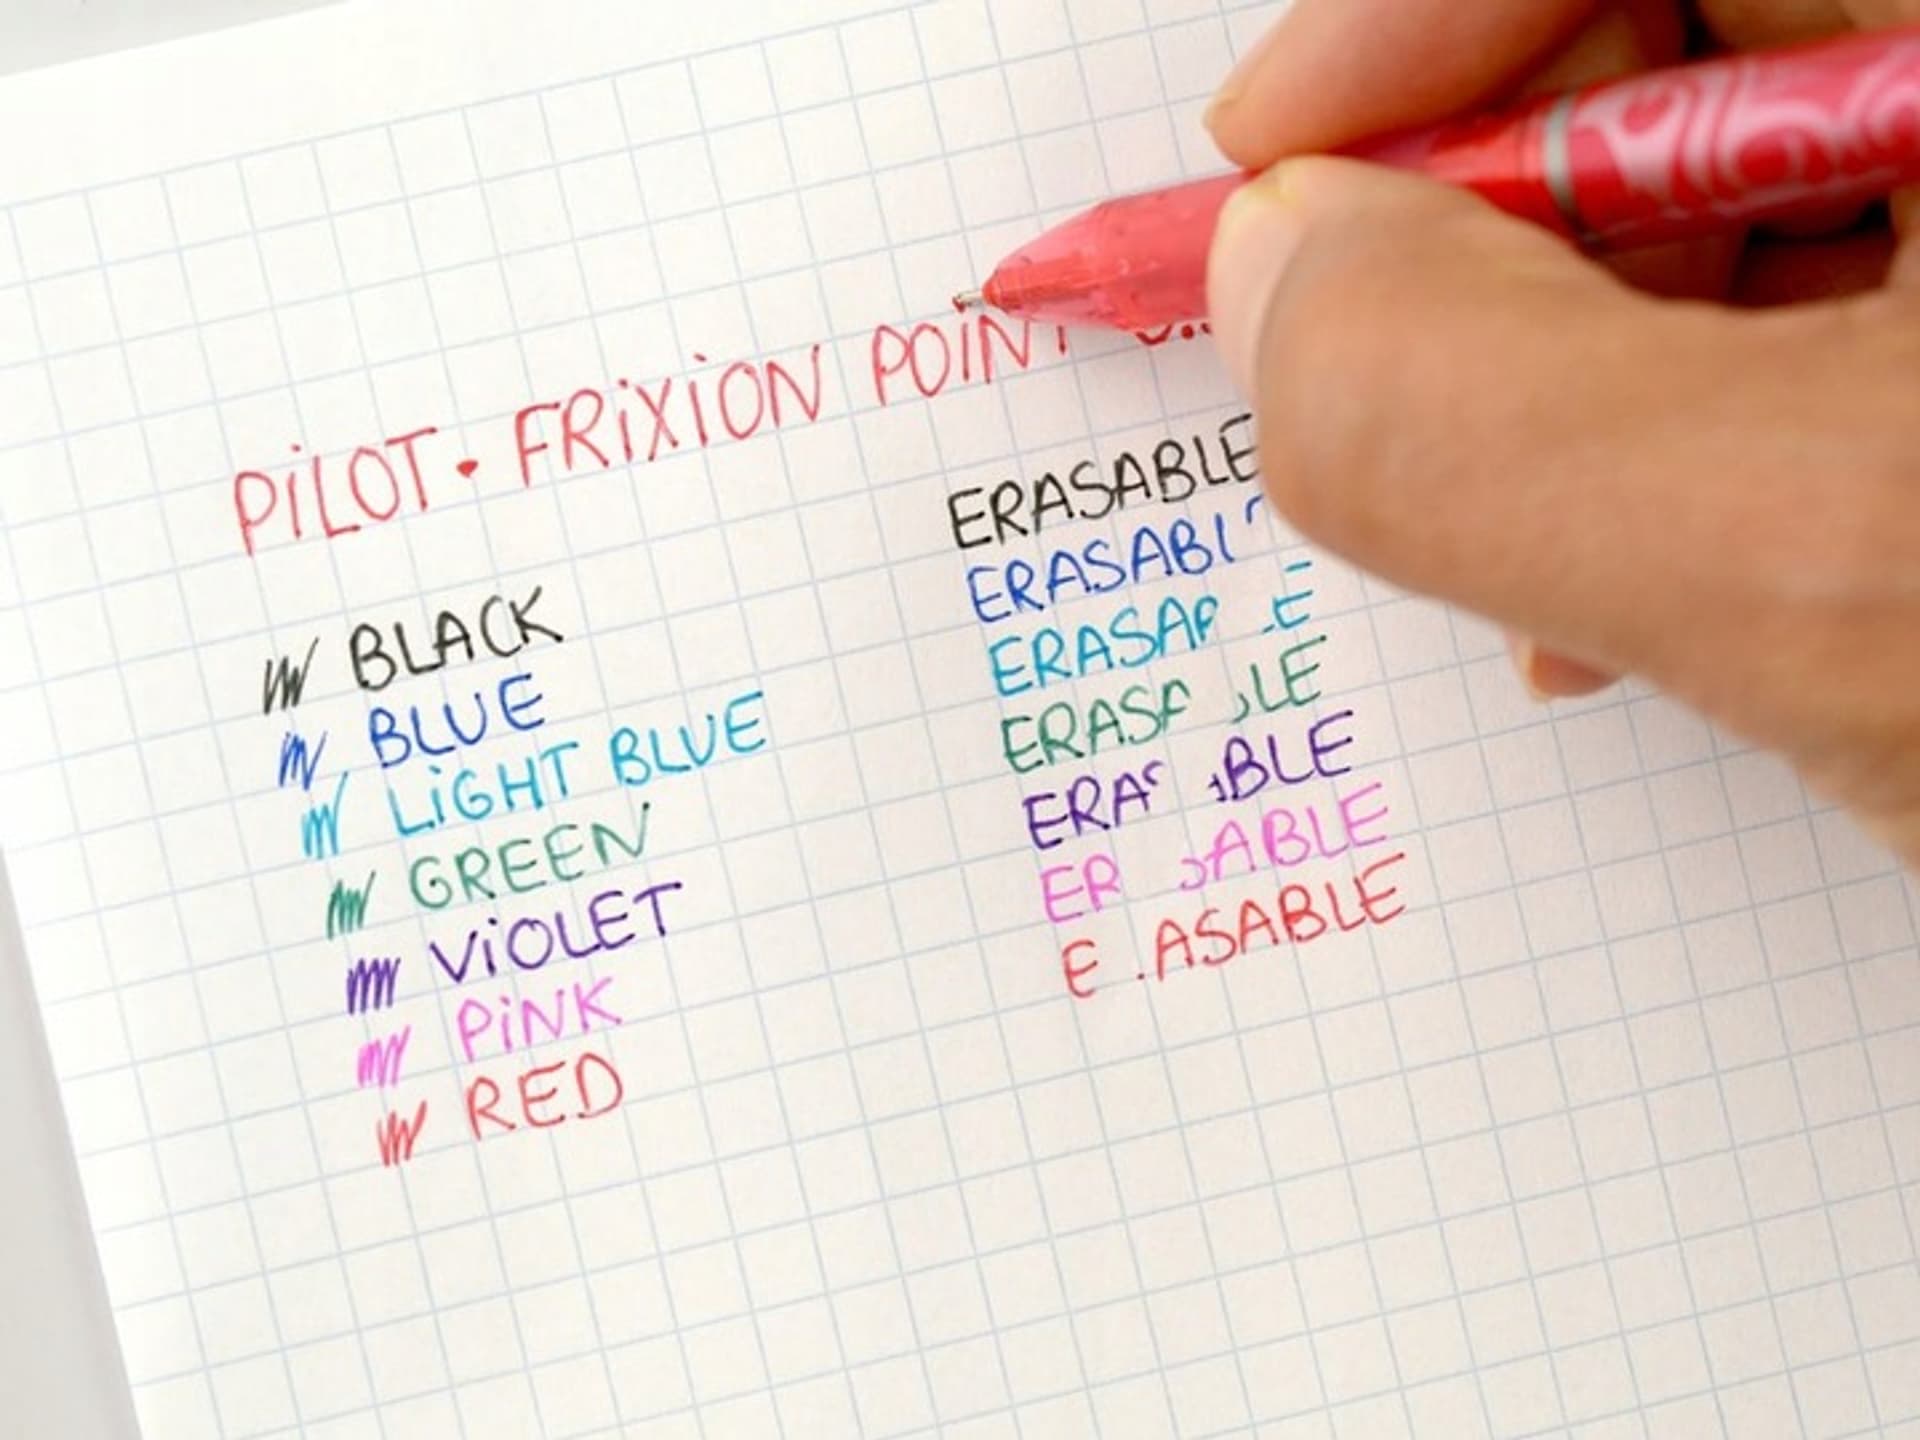 PiLOT · FRiXiON POiNT
BLACK
BLUE
LiGHT BLUE
GREEN
ViOLET
PiNK
RED
ERASABLE
ERASABL
ERASA E
ERASA LE
ERAS ABLE
ER SABLE
E ASABLE